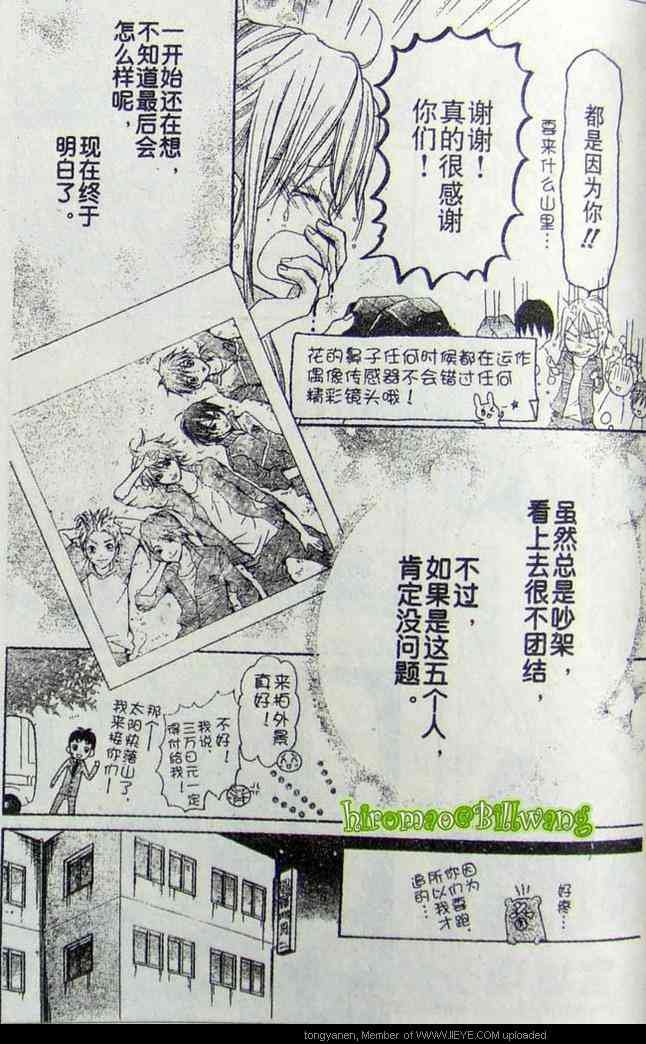 都是因为你!!
要来什么山里…
谢谢!
真的很感谢
你们!
花的鼻子任何时候都在运作
偶像传感器不会错过任何
精彩镜头哦!
一开始还在想,
不知道最后会
怎么样呢,
现在终于
明白了。
虽然总是吵架,
看上去很不团结,
不过,
如果是这五个人,
肯定没问题。
来拍外景
真好!
不好!
我说,
三万日元一定
得付给我!
那个—
太阳快落山了,
我来接你们—
hiromao@Billwang
好疼…
因为
你们要跑,
所以我才
追的…
tongyanen, Member of WWW.JIEYE.COM uploaded